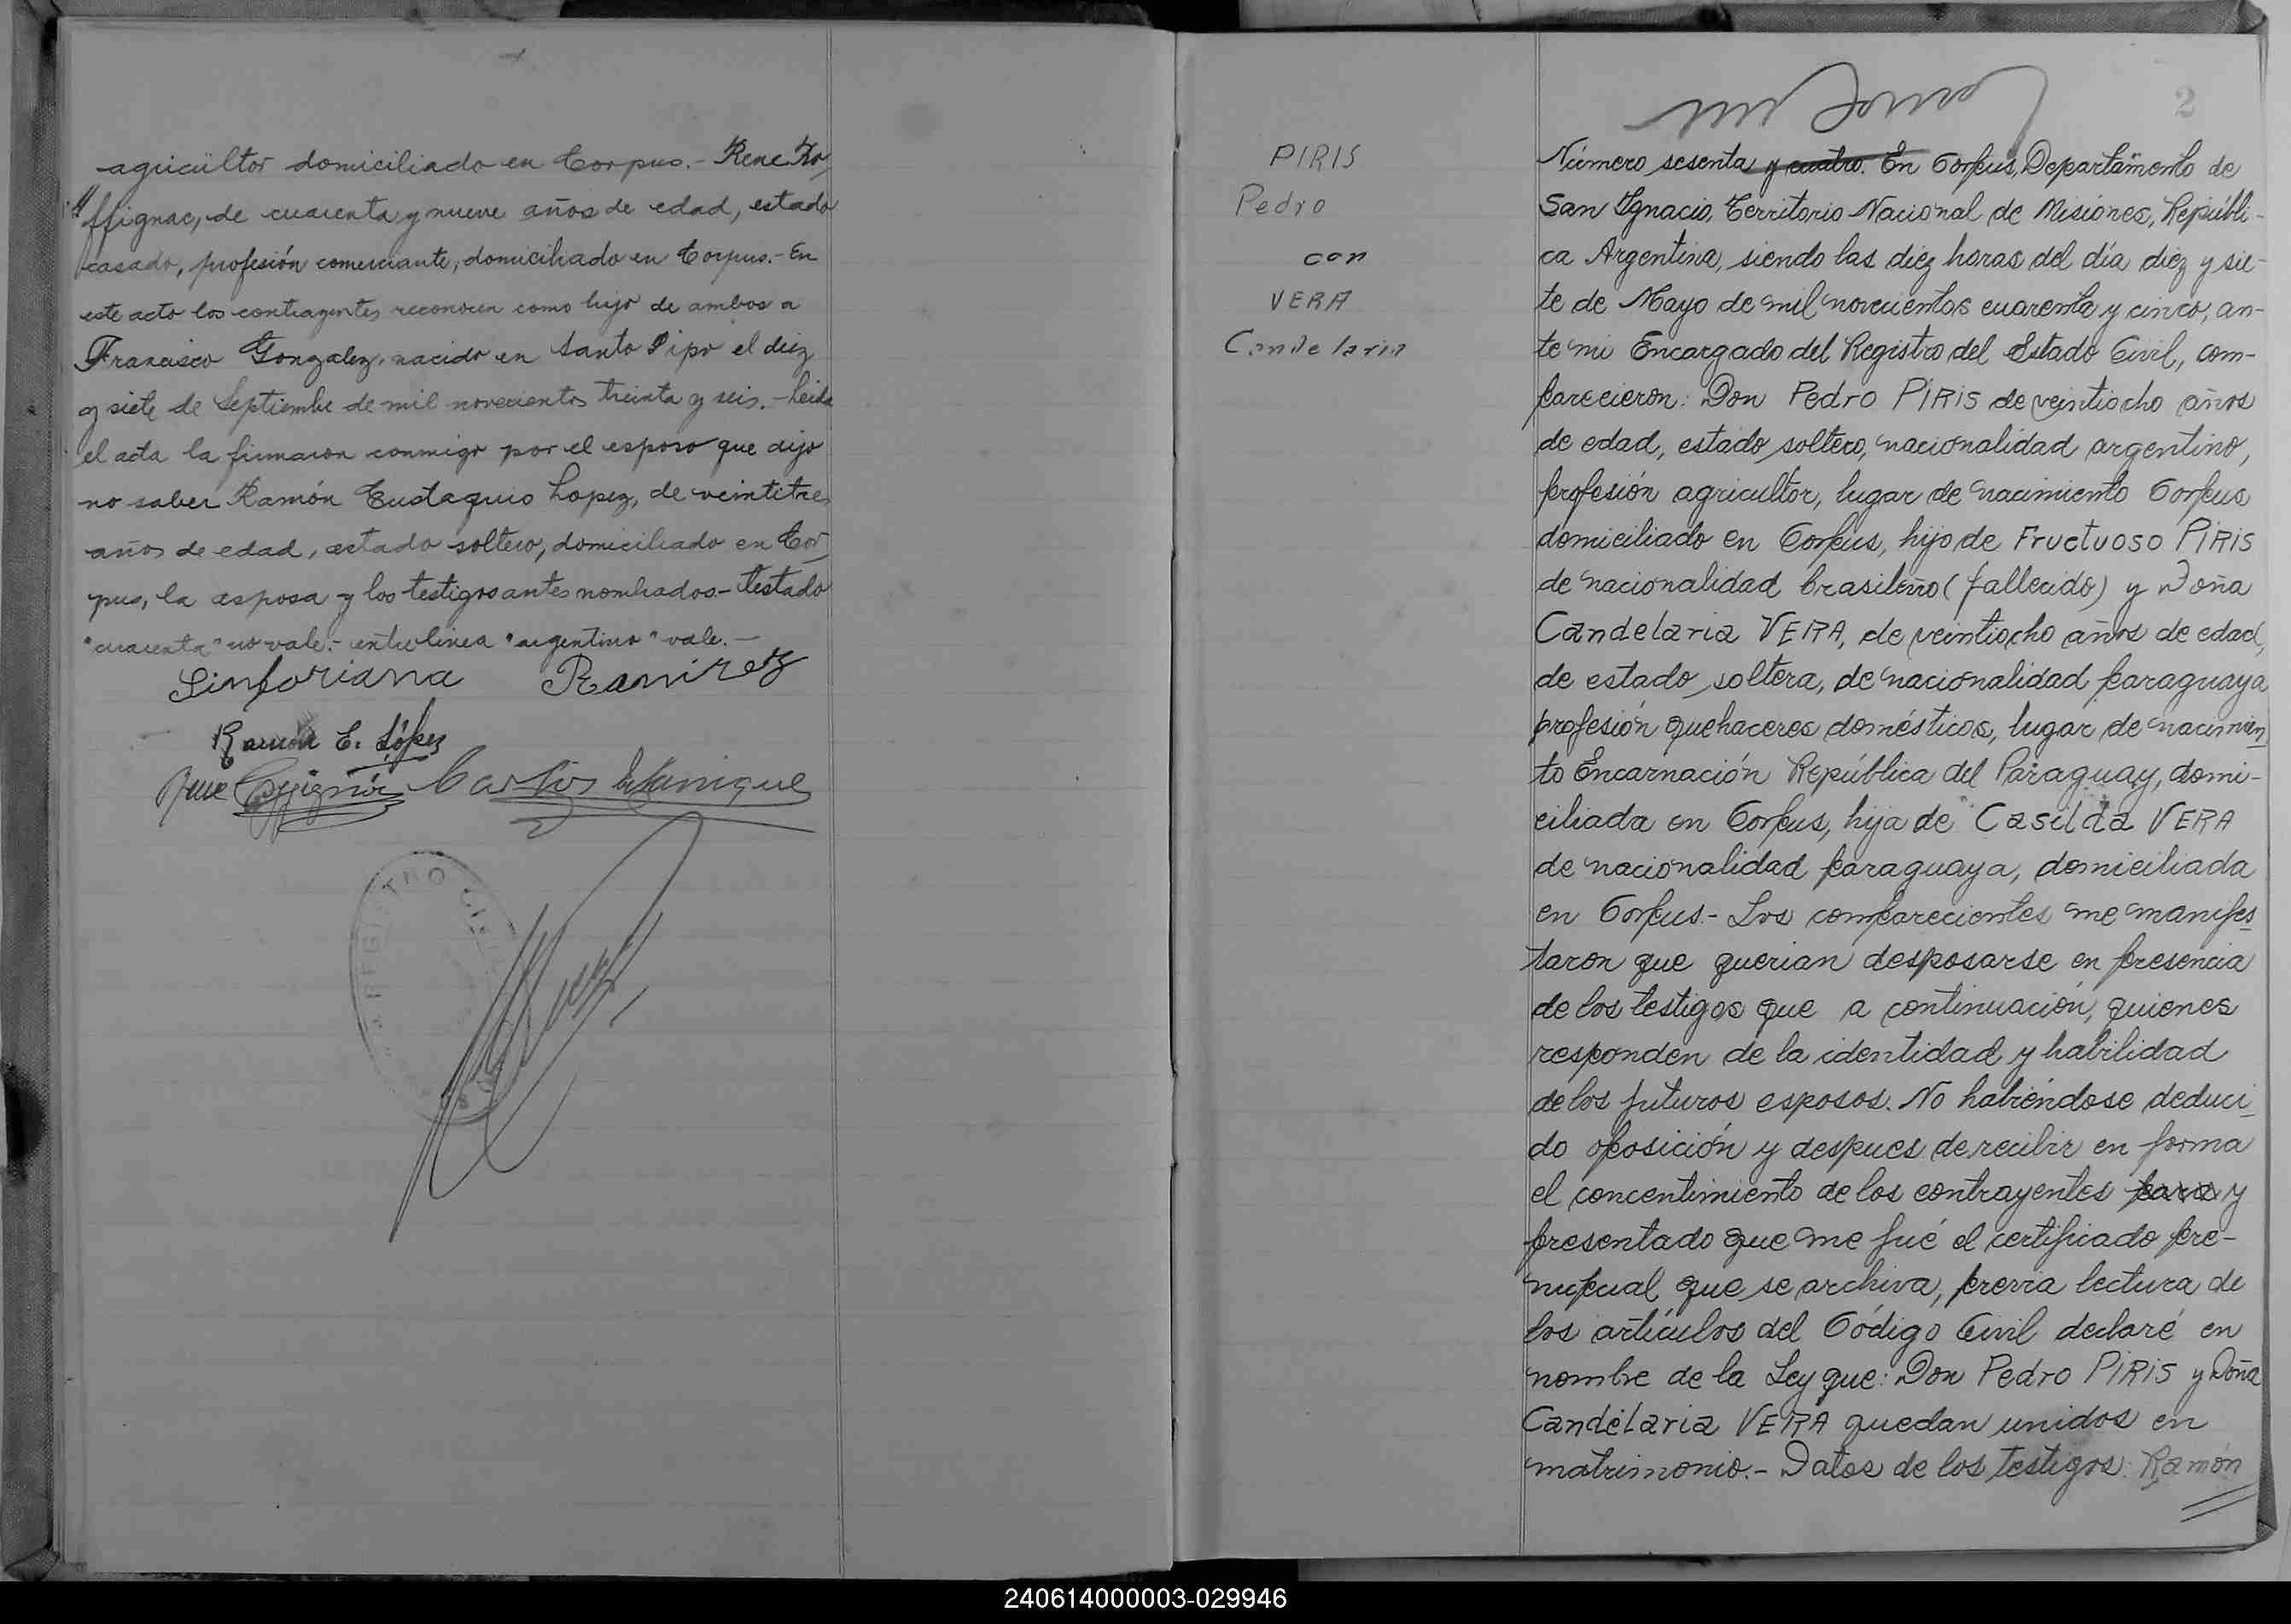 agricultor domiciliado en Corpus.- Rene
ffignac, de cuarenta y nueve años de edad, estado
casado, profesión comerciante, domiciliado en Corpus.- En
este acto los contrayentes reconocen como hijo de ambos a
Francisco Gonzalez, nacido en Santo Pipo el diez
y siete de Septiembre de mil novecientos treinta y seis.- Leida
el acta la firmaron conmigo por el esposo que dijo
no saber Ramón Eustaquio Lopez, de veintitres
años de edad, estado soltero, domiciliado en Cor
pus, la esposa y los testigos antes nombrados.- Testado
"cuarenta" no vale.- entrelinea "argentino" vale.-
Sinforiana Ramirez
Ramón E. López
Rene Carlos
REGISTRO CIVIL
2
PIRIS
Pedro
con
VERA
Candelaria
Número sesenta y cuatro. En Corpus, Departamento de
San Ygnacio, Territorio Nacional de Misiones, Repúbli-
ca Argentina, siendo las diez horas del día diez y sie-
te de Mayo de mil novecientos cuarenta y cinco, an-
te mi Encargado del Registro del Estado Civil, com-
parecieron: Don Pedro PIRIS de veintiocho años
de edad, estado soltero, nacionalidad argentino,
profesión agricultor, lugar de nacimiento Corpus
domiciliado en Corpus, hijo de Fructuoso PIRIS
de nacionalidad brasileño (fallecido) y Doña
Candelaria VERA, de veintiocho años de edad,
de estado soltera, de nacionalidad paraguaya
profesión quehaceres domésticos, lugar de nacimien
to Encarnación República del Paraguay, domi-
ciliada en Corpus, hija de Casilda VERA
de nacionalidad paraguaya, domiciliada
en Corpus.- Los comparecientes me manifes
taron que querian desposarse en presencia
de los testigos que a continuación, quienes
responden de la identidad y habilidad
de los futuros esposos. No habiéndose deduci
do oposición y despues de recibir en forma
el concentimiento de los contrayentes para y
presentado que me fué el certificado pre-
nupcual que se archiva, previa lectura de
los artículos del Código Civil declaré en
nombre de la Ley que: Don Pedro PIRIS y Doña
Candelaria VERA quedan unidos en
matrimonio.- Datos de los testigos: Ramón
240614000003-029946